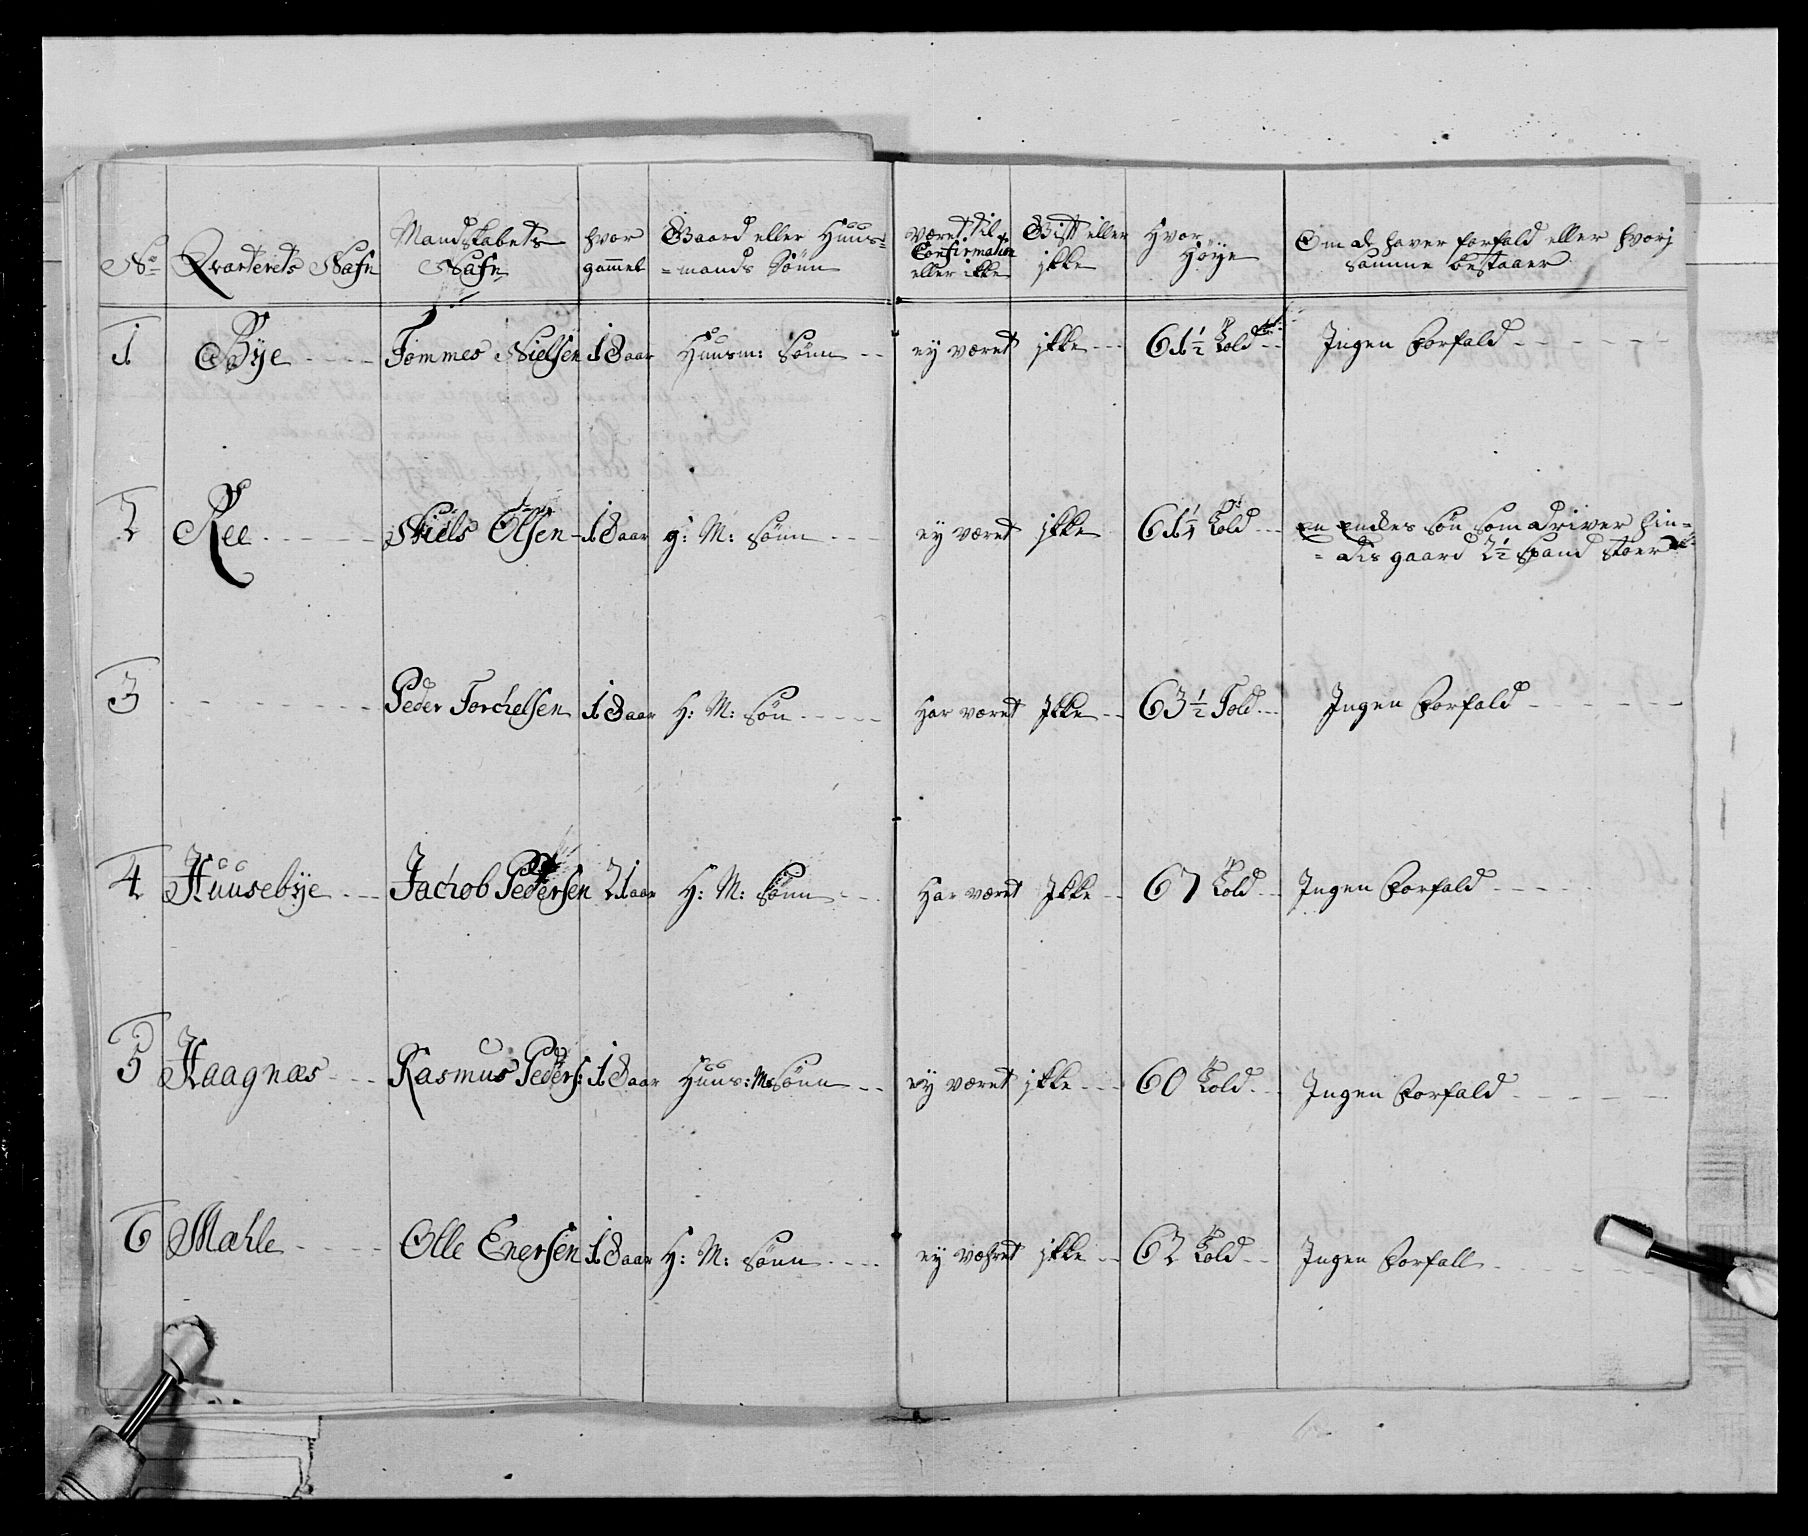 No Qvarterets Nafn Mandskabets Nafn hvor gammel Gaard eller Huus= =mands Sönn været til Confirmation eller ikke Gift eller ikke Hvor Höye Om de haver forfald eller hvorj samme bestaaer
1 Bÿe Tommes Nielsen 18 aar Huusm: Sönn ey været ikke 61½ Told Ingen Forfald
2 Ree Niels Olsen 18 aar g: M: Sönn ey været ikke 61¼ Told En Enckes Sön som driver hin=
=des gaard 2½ Spand stoer
3 Peder Torchelsen 18 aar H: M: Sön Har været Ikke 63½ Told Ingen Forfald
4 Huusebÿe Jachob Pedersen 21 aar H: M: Sönn Har været Ikke 67 Told Ingen Forfald
5 Haagnæs Rasmus Peders: 18 aar Huus: M: Sönn ey været ikke 60 Told Ingen Forfald
6 Mæhle Olle Enersen 18 aar H: M: Sönn ey været ikke 62 Told Ingen Forfall